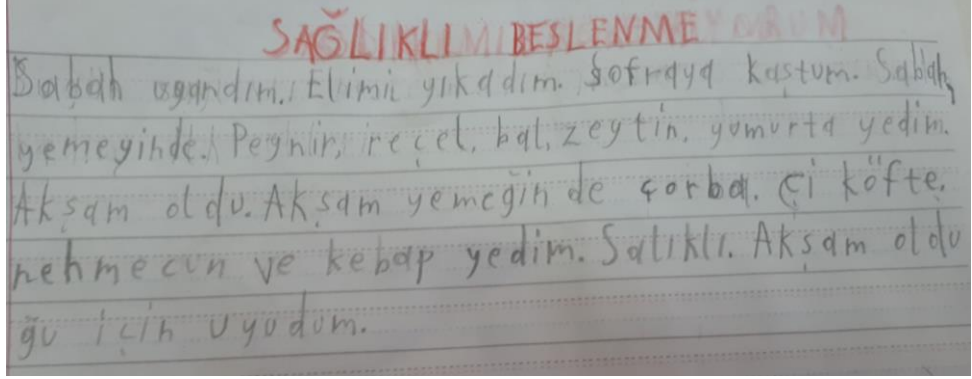 SAĞLIKLI BESLENME
Sabah uyandım. Elimi yıkadım. Sofraya kostum. Sabah,
yemeyinde. Peynir, reçel, bal, zeytin, yumurta yedim.
Akşam oldu. Akşam yemeğin de çorba. Çi köfte.
nehmecun ve kebap yedim. Satıklı. Akşam oldu
ğu için uyudum.